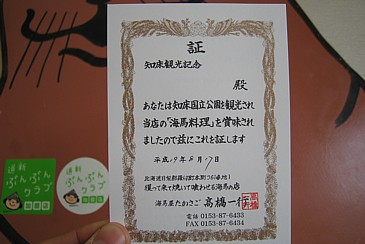 証
知床観光記念
殿
あなたは知床国立公園を観光され
当店の「海馬料理」を賞味され
ましたので茲にこれを証します
平成19年8月17日
北海道目梨郡羅臼町本町361番地1
獲って来て焼いて喰わせる海馬の店
海馬屋たかさご 高橋一行
電話 0153-87-6433
FAX 0153-87-6434
ぷんぷん
クラブ
ぷんぷん
クラブ